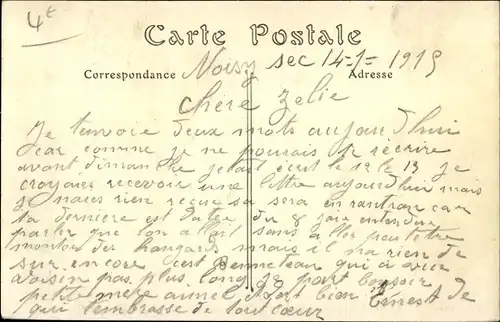 4€
Carte Postale
Correspondance Noisy sec 14-1-1915 Adresse
chère zelie
Je tenvoie deux mots aujourdhui
car comme je ne pourais te récrire
avant dimanche je tait écrit le 12 le 13 je
croyais recevoir une lettre aujourdhui mais
rien recue sa sera en rantran car
ta dernière est datée du 8 jaie entendue
parler que lon allait sans aller peutetre
montar des hangards mais il na rien de
sur encore cest Bonneteau qui a
voisin pas plus long
petite mere fort bien Ernest de
qui tembrasse de tout cœur